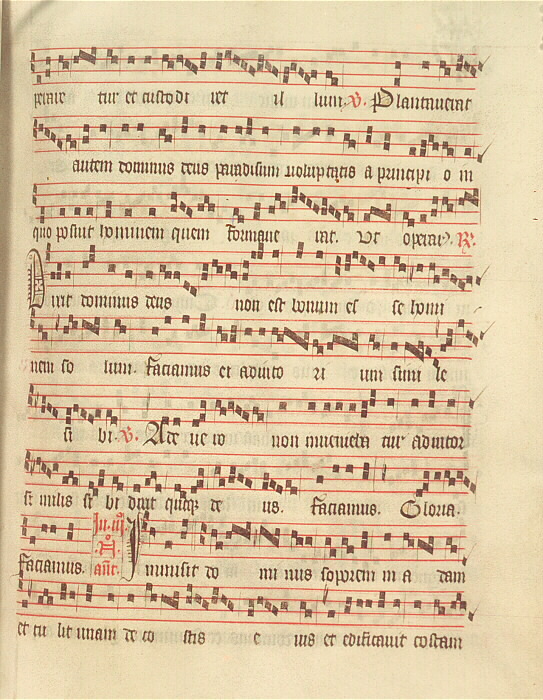 perare tur et custodi ret il lum. V. Plantaverat
autem dominus deus paradisum voluptatis a principi o in
quo posuit hominem quem formaue rat. Ut operar. R.
Dixit dominus deus non est bonum es se homi
nem so lum. faciamus ei adiuto ri um simi le
si bi. V. Ade ue ro non inuenieba tur adiutor
si milis si bi dixit deus. faciamus. Gloria.
faciamus. In aut. Inmisit do mi nus soporem in a dam
et tu lit unam de co stis e ius et edificauit costam